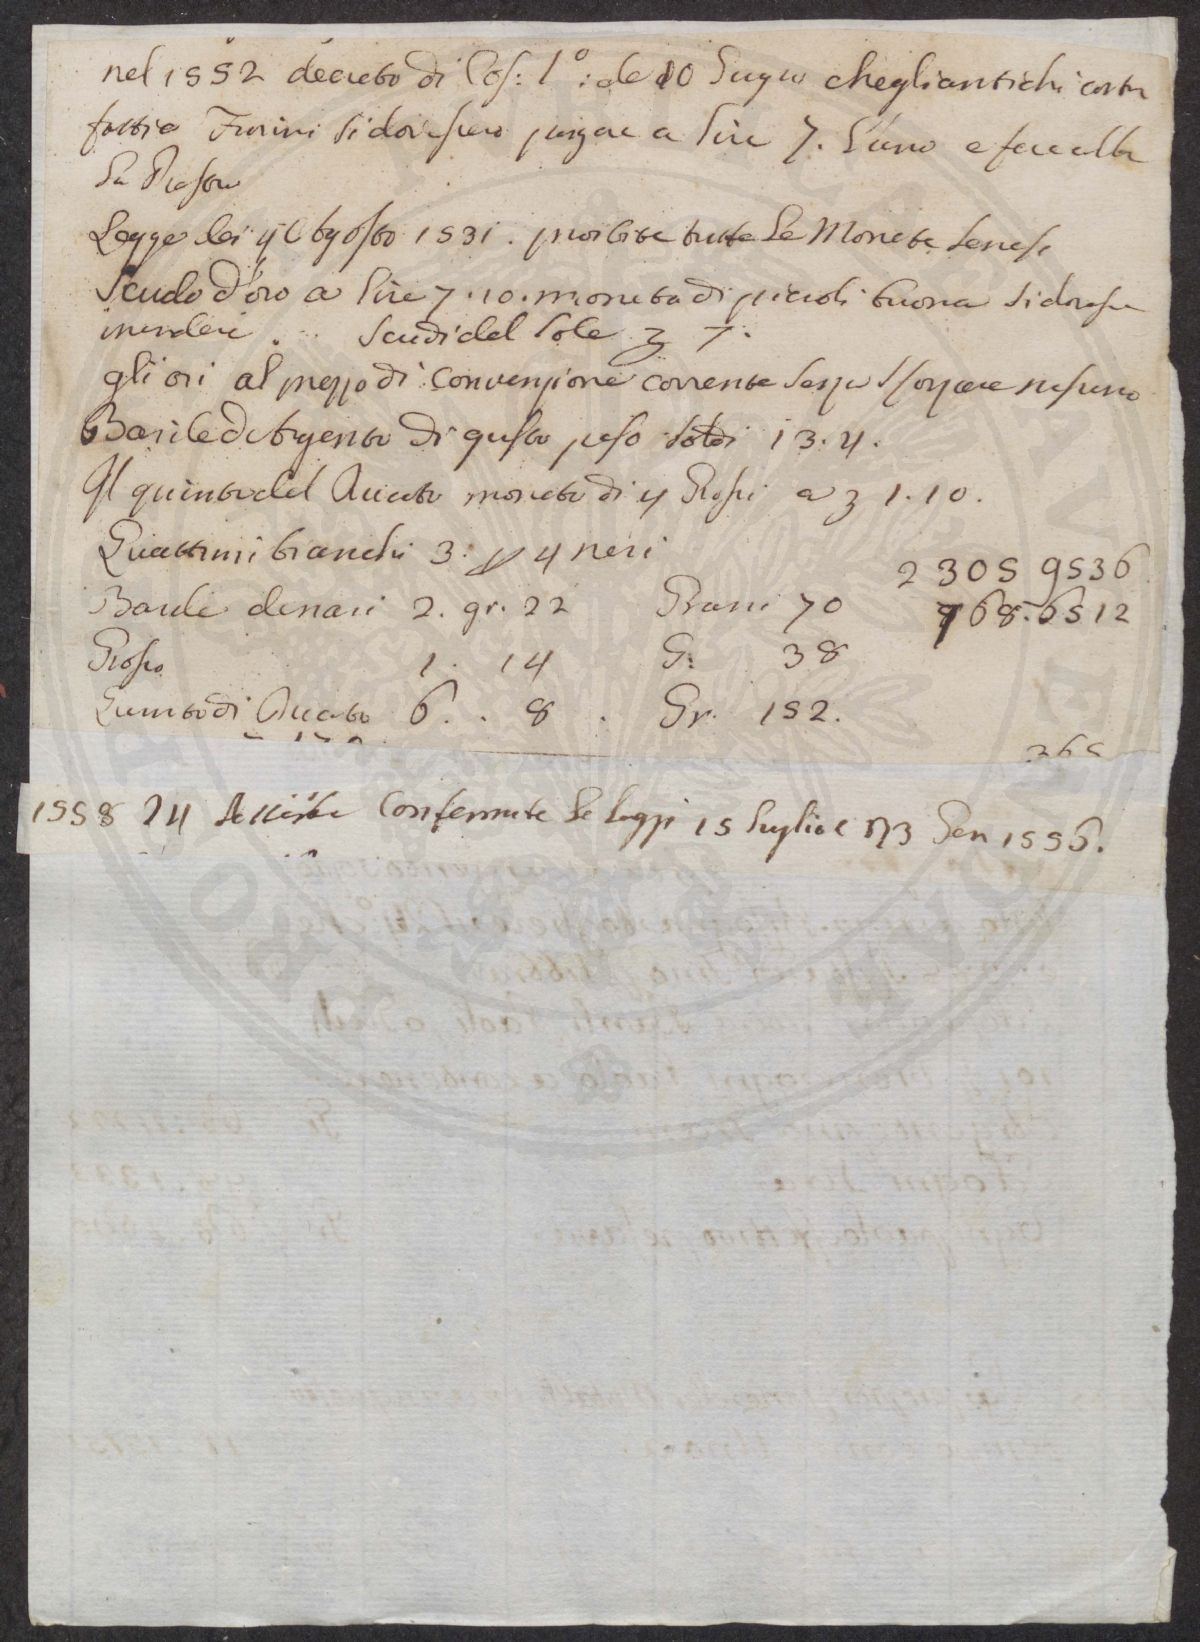 nel 1552 decreto di Cos: 1º: de 10 Giugno che gli antichi contra
fattie Fiorini si dovessero pagare a lire 7. l'uno e facolta
Legge dei 4 Agosto 1531. proibite tutte le Monete Senesi
Scudo d'oro a lire 7.10. moneta di piccioli buona si dovesse
Scudi del Sole 7.
gli ori al prezzo di convenzione corrente senza sforzare nessuno
Barile d'Argento di gusto peso soldi 13.4.
Il quinto del Ducato moneta di 4 Grossi a 1.10.
Quattrini bianchi 3. 4 neri
2305 9536
Barile denari 2. gr. 22 Grani 70
968.6512
Grosso 1. 14 G: 38
Quinto di Ducato 6. . 8 . Gr. 152.
365
1558 24 Confermate le Leggi 15 Luglio e 13 Gen 1556.